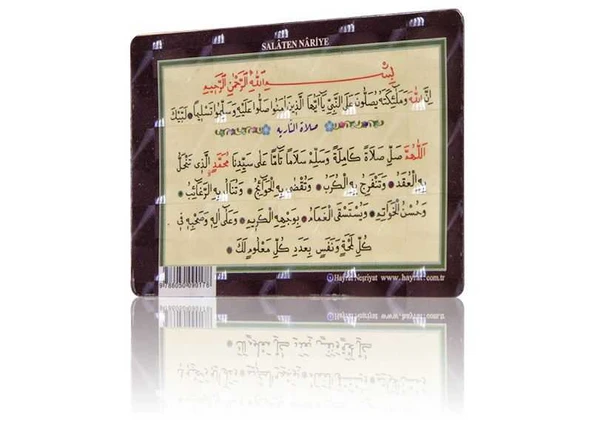 SALÂTEN NÂRİYE
بِسْــــمِ اللهِ الرَّحْمٰنِ الرَّحِيمِ
اِنَّ اللهَ وَمَلٰٓئِكَتَهُ يُصَلُّونَ عَلَى النَّبِيِّ يَٓا اَيُّهَا الَّذِينَ اٰمَنُوا صَلُّوا عَلَيْهِ وَسَلِّمُوا تَسْلِيمًا ❁ لَبَّيْكَ
صلاة النارية
اَللّٰهُمَّ صَلِّ صَلَاةً كَامِلَةً وَسَلِّمْ سَلَامًا تَامًّا عَلٰى سَيِّدِنَا مُحَمَّدٍ الَّذِي تَنْحَلُّ
بِهِ الْعُقَدُ ❁ وَتَنْفَرِجُ بِهِ الْكُرَبُ ❁ وَتُقْضٰى بِهِ الْحَوَٓائِجُ ❁ وَتُنَالُ بِهِ الرَّغَٓائِبُ ❁
وَحُسْنُ الْخَوَاتِيمِ ❁ وَيُسْتَسْقَى الْغَمَامُ ❁ بِوَجْهِهِ الْكَرِيمِ ❁ وَعَلٰٓى اٰلِهِ وَصَحْبِهِ فِي
كُلِّ لَمْحَةٍ وَنَفَسٍ بِعَدَدِ كُلِّ مَعْلُومٍ لَكَ ❁
9786050090178
Hayrat Neşriyat www.hayrat.com.tr